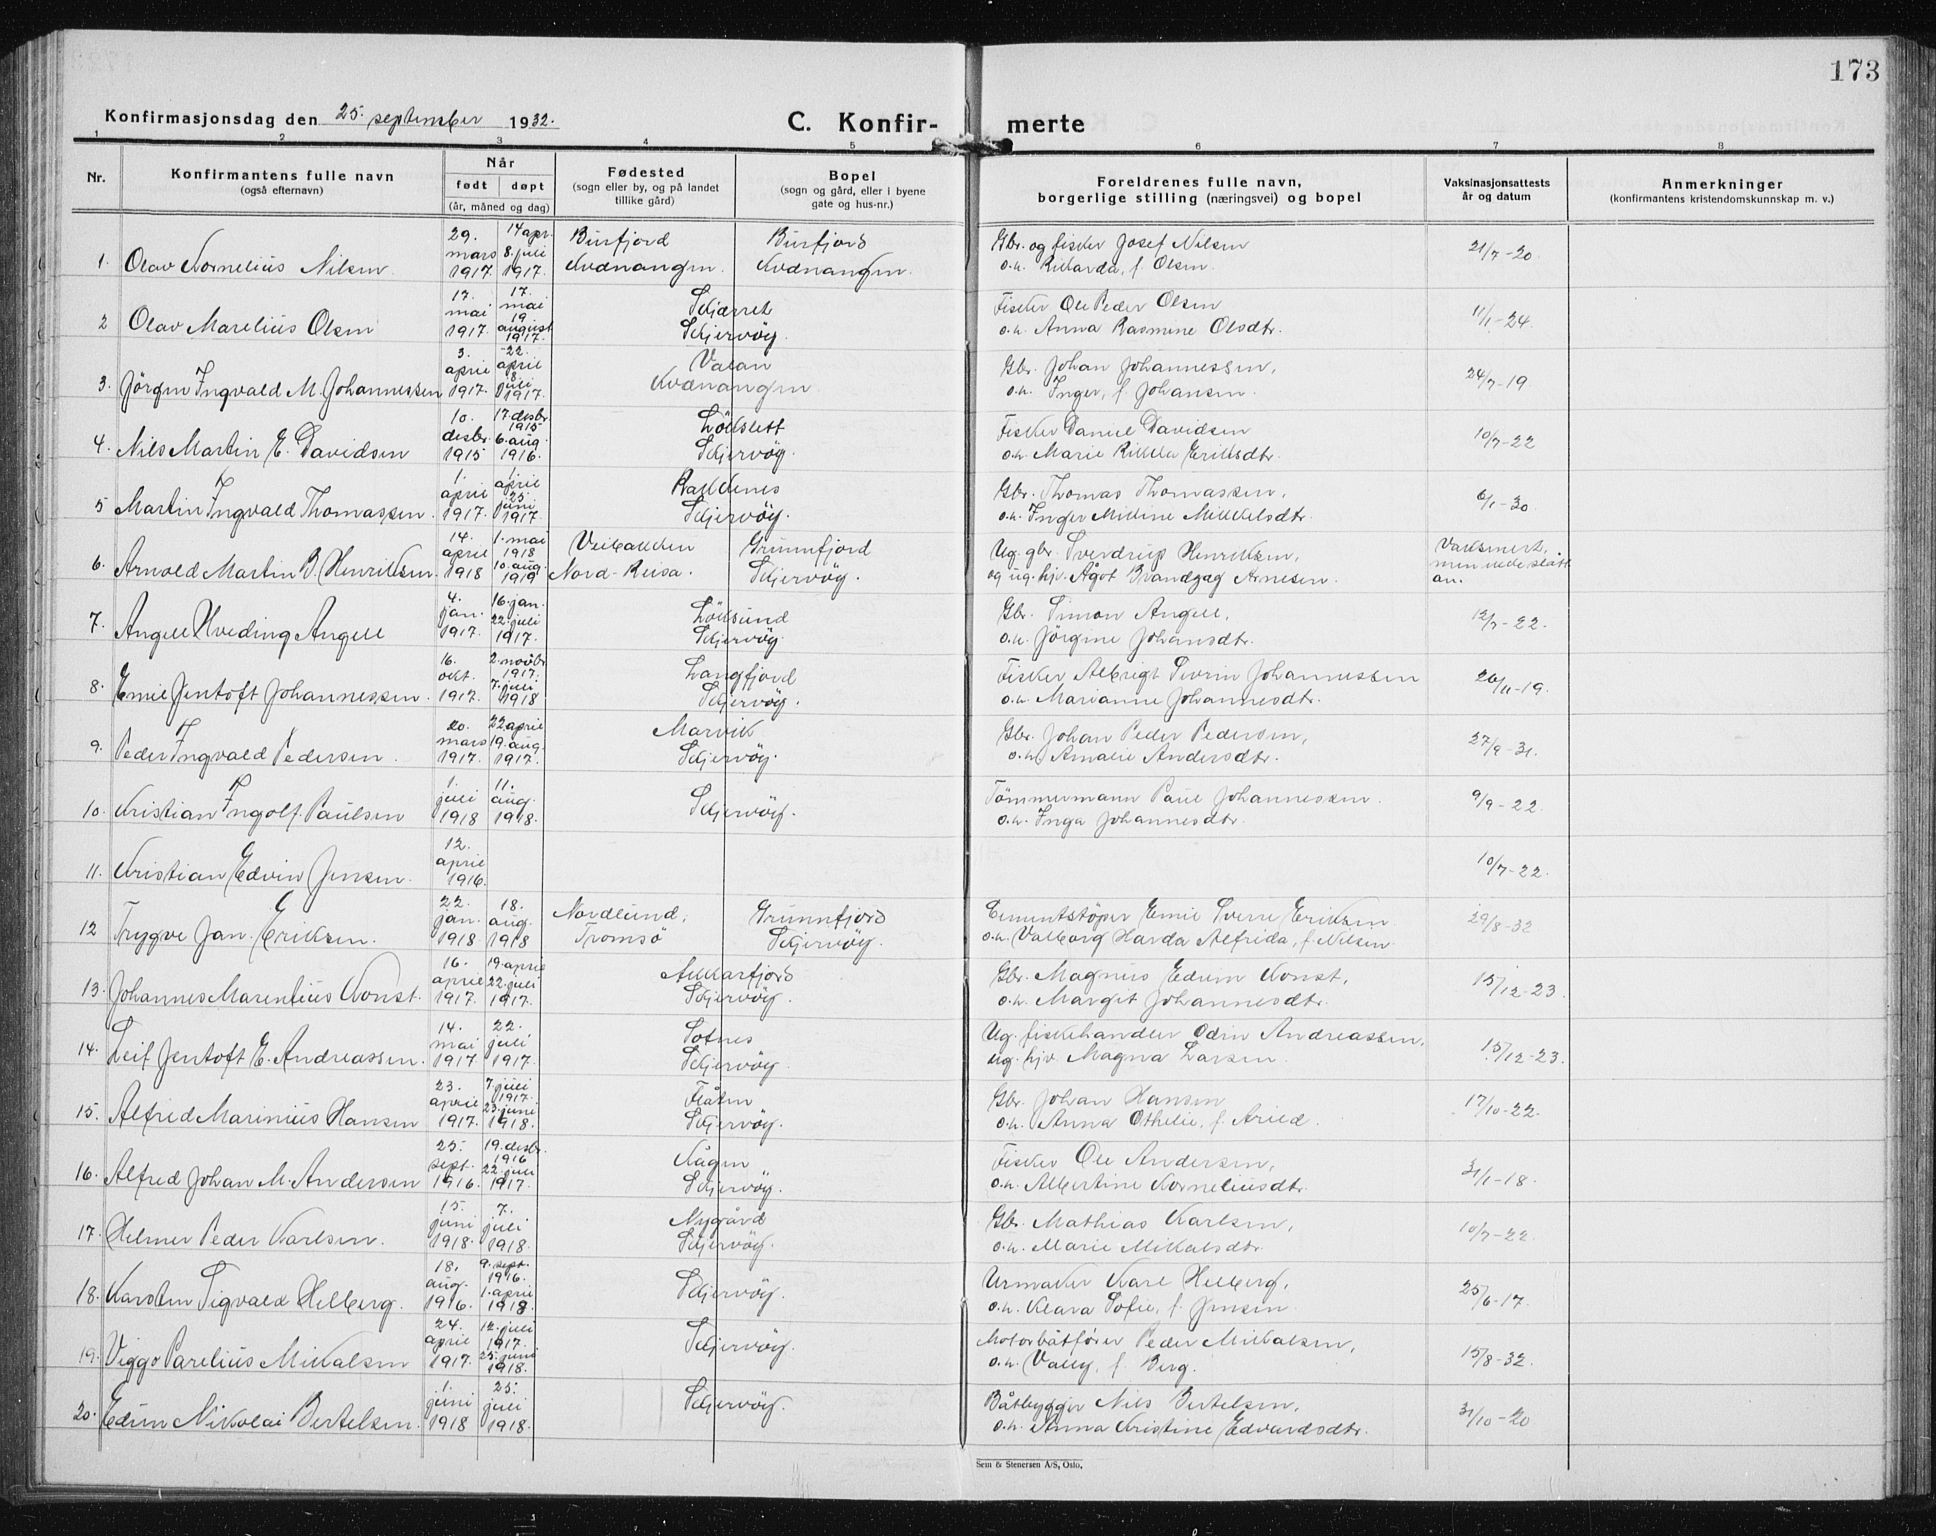 173
Konfirmasjonsdag den 25. september 1932.
C. Konfir-merte
1 2 3 4 5 6 7 8
Nr.
Konfirmantens fulle navn
(også efternavn)
Når
født døpt
(år, måned og dag)
Fødested
(sogn eller by, og på landet
tillike gård)
Bopel
(sogn og gård, eller i byene
gate og hus-nr.)
Foreldrenes fulle navn,
borgerlige stilling (næringsvei) og bopel
Vaksinasjonsattests
år og datum
Anmerkninger
(konfirmantens kristendomskunnskap m. v.)
29. 14 apr. Burfjord Burfjord Gbr. og fisker Josef Nilsen 21/7-20.
mars 8. juli
1. Olav Kornelius Nilsen. 1917. 1917. Kvænangen. Kvænangen. o.h. Rikarda, f. Olsen.
17. 17. Skjæret Fisker Ole Peder Olsen
mai mai 19. 11/1-24.
2 Olav Marelius Olsen 1917. august 1917. Skjervöy. o.h. Anna Rasmine Olsdtr.
3. 22. Valan Gbr. Johan Johannessen, 24/7-19.
april april 8. juli Kvænangen
3. Jörgen Ingvald M. Johannessen 1917. 1917. o.h. Inger, f. Johansen.
10. 17. desbr. Lökslett Fisker Daniel Davidsen 10/7-22
desbr. 1915 6. aug.
4. Nils Martin E. Davidsen 1915 1916. Skjervöy. o.h. Marie Rikka Eriksdtr.
1. 1. Rakkenes Gbr. Thomas Thomassen,
april april 25 juni 6/1-30
5 Martin Ingvald Thomassen. 1917. 1917. Skjervöy. o.h. Inger Mikkine Mikkelsdtr.
14. 1. mai Veibakken Grunnfjord Ug. gbr. Sverdrup Henriksen, Vaksinert,
april 1918 10. aug. men ikke slått
6. Arnold Martin B. Henriksen. 1918 1919 Nord-Reisa. Skjervöy. og ug. hj. Ågot Brandzæg Arnesen. an.
4. 16. jan. Löksund Gbr. Simon Angell, 12/7-22.
jan. 22. juli
7. Angell Hveding Angell 1917. 1917. Skjervöy. o.h. Jörgine Johansdtr.
16. 2. novbr. Langfjord Fisker Albrigt Severin Johannessen 26/11-19.
okt. 1917. 7. juli
8. Emil Jentoft Johannessen. 1917. 1918 Skjervöy. o.h. Marianne Johannesdtr.
20. 22. april Marvik Gbr. Johan Peder Pedersen, 27/9-31.
mars 19. aug.
9. Peder Ingvald Pedersen. 1917. 1917. Skjervöy. o.h. Amalie Andersdtr.
1. 11. Tömmermann Paul Johannessen. 9/9-22.
juli aug. Skjervöy.
10. Kristian Ingolf Paulsen 1918 1918. o.h. Inga Johannesdtr.
12. 10/7-22.
april
11. Kristian Edvin Jensen. 1916.
22. 18. Nordlund, Grunnfjord Cementstöper Emil Sverre Eriksen 29/8-32
jan. aug.
12 Trygve Jan. Eriksen. 1918 1918 Tromsö Skjervöy. o.h. Valborg Harda Alfrida, f. Nilsen.
16. 19. april Akkarfjord Gbr. Magnus Edvin Konst, 15/12-23.
april 22. juli
13. Johannes Marentius Konst. 1917. 1917. Skjervöy. o.h. Margit Johannesdtr.
14. 22. Sotnes Ug. fiskehandler Odin Andreassen, 15/12-23.
mai juli
14. Leif Jentoft E. Andreassen. 1917 1917. Skjervöy. ug. hj. Magna Larsen.
23. 7. juli Flåten Gbr. Johan Hansen 17/10-22.
april 1917. 23. juni
15. Alfred Marinius Hansen 1917. 1918. Skjervöy. o.h. Anna Othelie, f. Arild.
25. 19. desbr. Kågen Fisker Ole Andersen, 31/1-18.
sept. 1916 22. juli
16. Alfred Johan M. Andersen 1916 1917. Skjervöy. o.h. Albertine Korneliusdtr.
15. 7. Nygård Gbr. Mathias Karlsen, 10/7-22.
juni juli
17. Helmer Peder Karlsen. 1918. 1918. Skjervöy. o.h. Marie Mikalsdtr.
18. 9. sept. Skjervöy. Urmaker Karl Helberg, 25/6-17.
aug. 1916. 1. april
18. Karsten Sigvald Helberg. 1916. 1918. o.h. Klara Sofie, f. Jensen.
24. 12. juli Skjervöy. Motorbåtförer Peder Mikalsen, 15/8-32.
april 1917. 23. juni
19. Viggo Parelius Mikalsen 1917. 1918. o.h. Vally, f. Berg.
1. 25. Skjervöy. Båtbygger Nils Bertelsen, 31/10-20
juni juli
20. Edvin Nikolai Bertelsen. 1918 1918. o.h. Anna Kristine Edvardsdtr.
Sem & Stenersen A/S, Oslo.